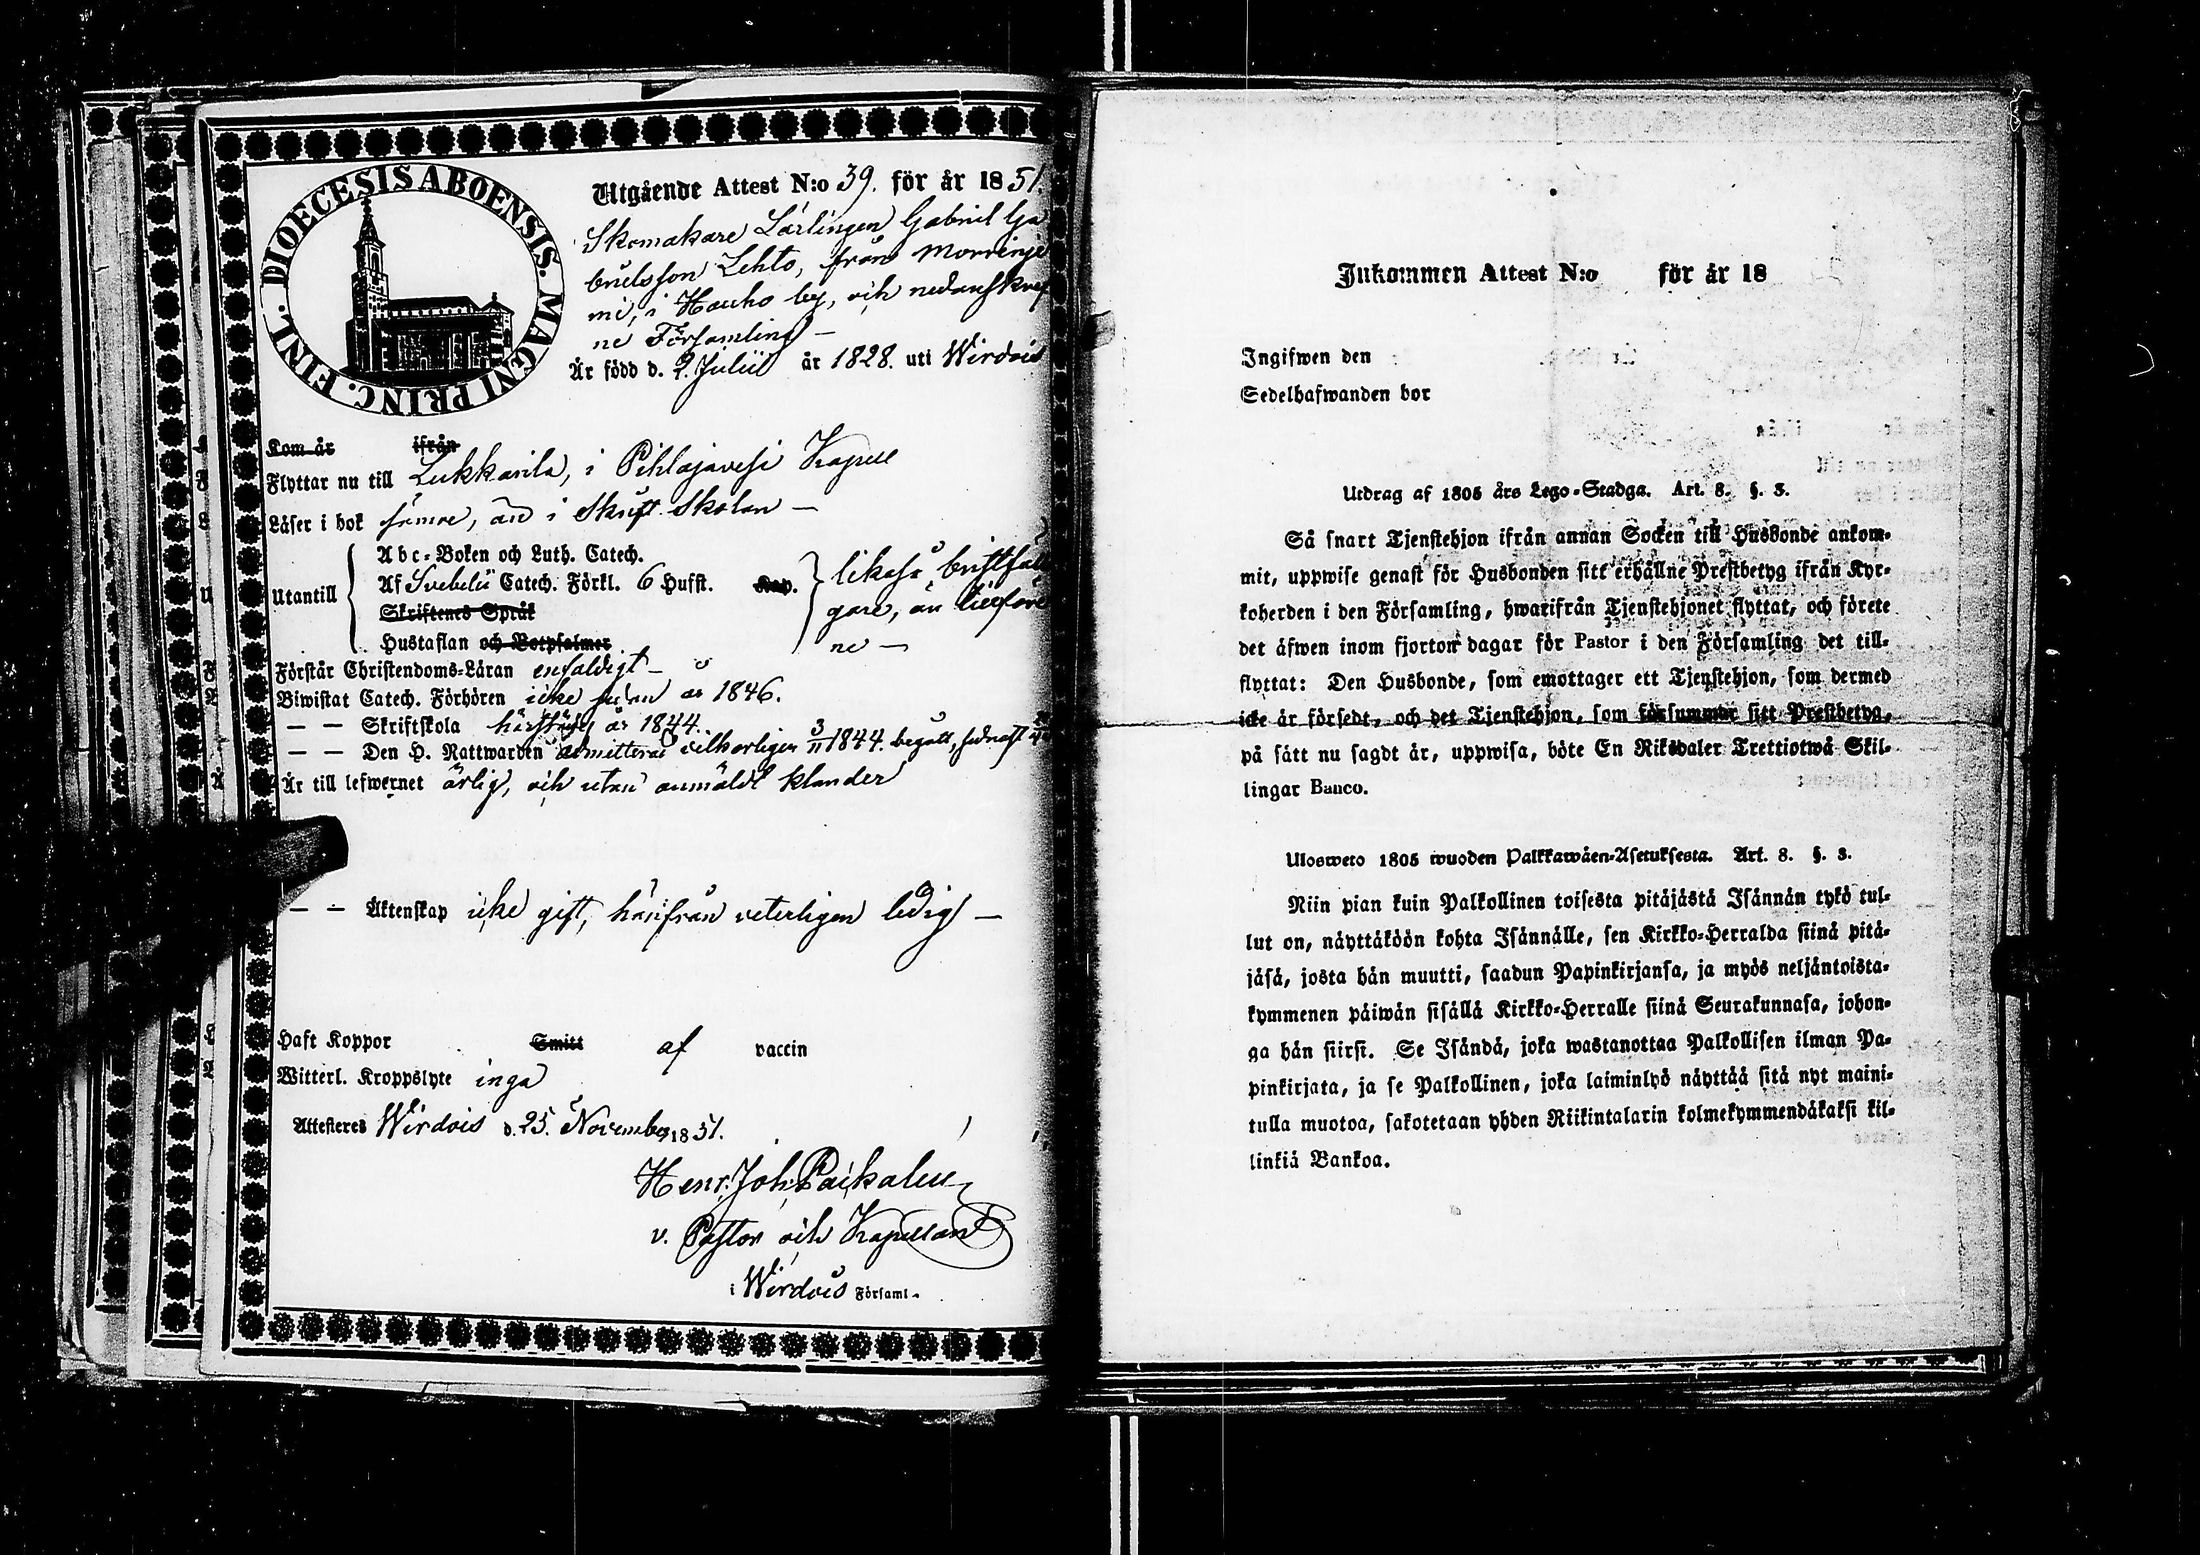 DIOECESIS ABOENSIS. MAGNI PRINC. FINL.
Utgående Attest N:o 39. för år 1851.
Skomakare Lärlingen Gabriel Ga
brielsson Lehto, från
i Hauho by, och nedanskref
ne Församling –
Är född d. 2. Julii år 1828. uti Wirdois
Kom år ifrån
Flyttar nu till Lukkarila, i Pihlajavesi Kapell
Läser i bok sämre, än i Skrift Skolan –
Utantill
Abc-Boken och Luth. Catech.
Af Svebelii Catech. Förkl. 6 Hufst. Kap.
Skriftenes Språk
Hustaflan och Botpsalmer
likaså bristfäl
gare, än
ne –
Förstår Christendoms-Läran enfaldigt –
Biwistat Catech. Förhören icke sedan år 1846.
– – Skriftskola härstädes år 1844.
– – Den H. Nattwarden admitterad vilkorligen 3/11 1844. begått, sednast
Är till lefwernet ärlig, och utan anmäldt klander
– – Äktenskap icke gift, härifrån veterligen ledig –
Haft Koppor Smitt af vaccin
Witterl. Kroppslyte inga
Attesteres Wirdois d. 25. November 1851.
Henr. Joh. Paikalen
v. Pastor och Kapellan
i Wirdois Församl.
Inkommen Attest N:o för år 18
Ingifwen den
Sedelhafwanden bor
Utdrag af 1805 års Lego-Stadga. Art. 8. §. 3.
Så snart Tjenstehjon ifrån annan Socken till Husbonde ankom-
mit, uppwise genast för Husbonden sitt erhållne Prestbetyg ifrån Kyr-
koherden i den Församling, hwarifrån Tjenstehjonet flyttat, och förete
det äfwen inom fjorton dagar för Pastor i den Församling det till-
flyttat: Den Husbonde, som emottager ett Tjenstehjon, som dermed
icke är försedt, och det Tjenstehjon, som försummar sitt Prestbetyg,
på sätt nu sagdt är, uppwisa, böte En Riksdaler Trettiotwå Skil-
lingar Banco.
Ulosweto 1805 wuoden Palkkawäen-Asetuksesta. Art. 8. §. 3.
Niin pian kuin Palkollinen toisesta pitäjästä Isännän tykö tul-
lut on, näyttäköön kohta Isännälle, sen Kirkko-Herralda siinä pitä-
jäsä, josta hän muutti, saadun Papinkirjansa, ja myös neljäntoista-
kymmenen päiwän sisällä Kirkko-Herralle siinä Seurakunnasa, johon-
ga hän siirsi. Se Isändä, joka wastanottaa Palkollisen ilman Pa-
pinkirjata, ja se Palkollinen, joka laiminlyö näyttää sitä nyt maini-
tulla muotoa, sakotetaan yhden Riikintalarin kolmekymmendäkaksi kil-
linkiä Bankoa.